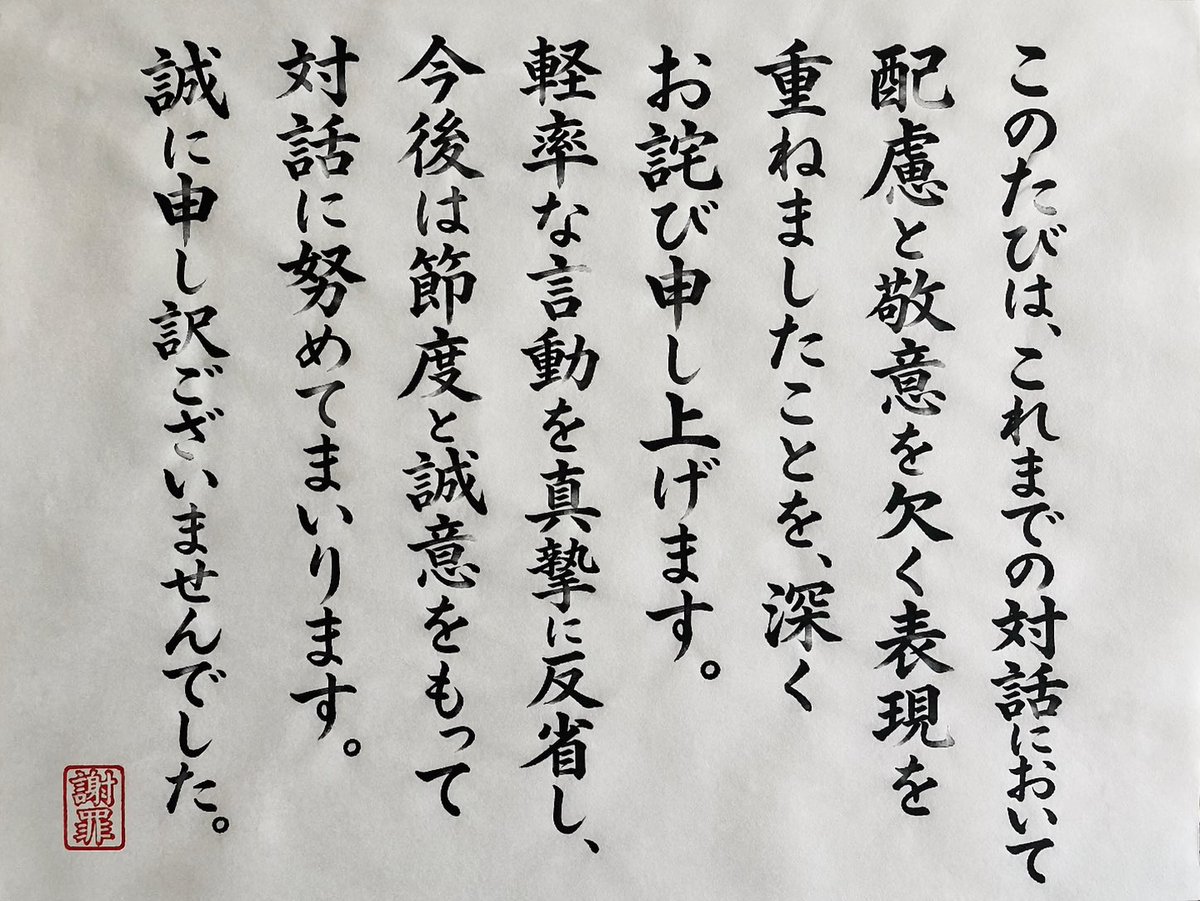 このたびは、これまでの対話において
配慮と敬意を欠く表現を
重ねましたことを、深く
お詫び申し上げます。
軽率な言動を真摯に反省し、
今後は節度と誠意をもって
対話に努めてまいります。
誠に申し訳ございませんでした。
謝罪